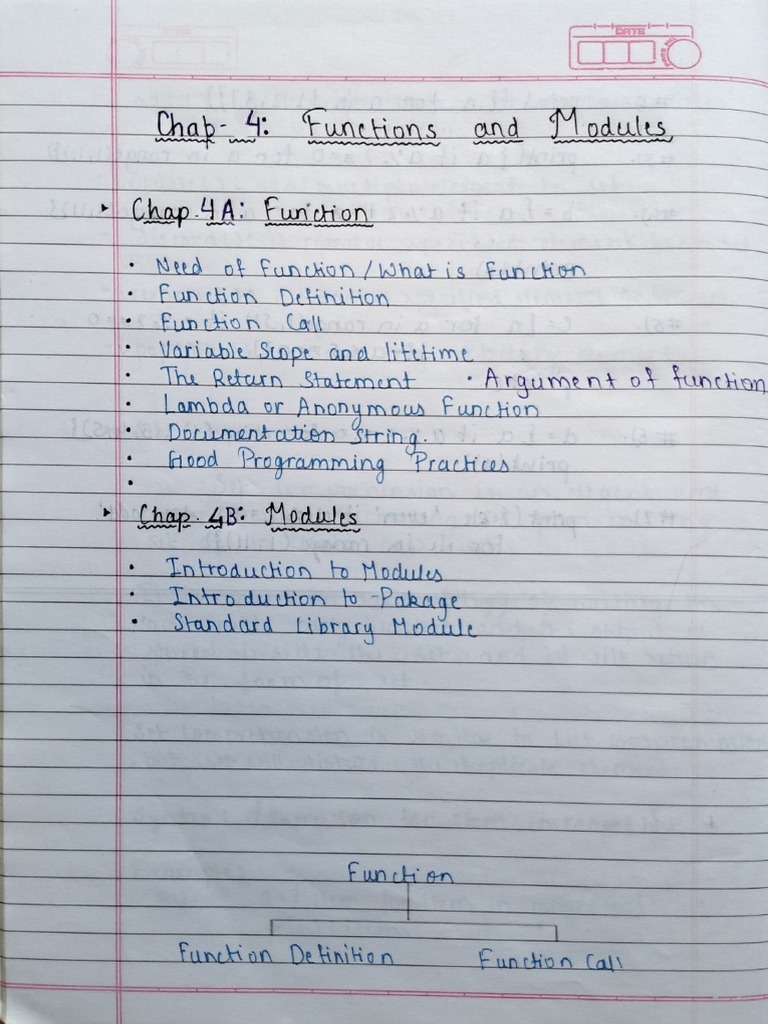 DATE
Chap- 4: Functions and Modules
Chap. 4A: Function
• Need of Function / What is Function
• Function Definition
• Function Call
• Variable Scope and lifetime
• The Return Statement • Argument of function
• Lambda or Anonymous Function
• Documentation String.
• Good Programming Practices
•
Chap. 4B: Modules
• Introduction to Modules
• Introduction to Pakage
• Standard Library Module
Function
Function Definition Function Call